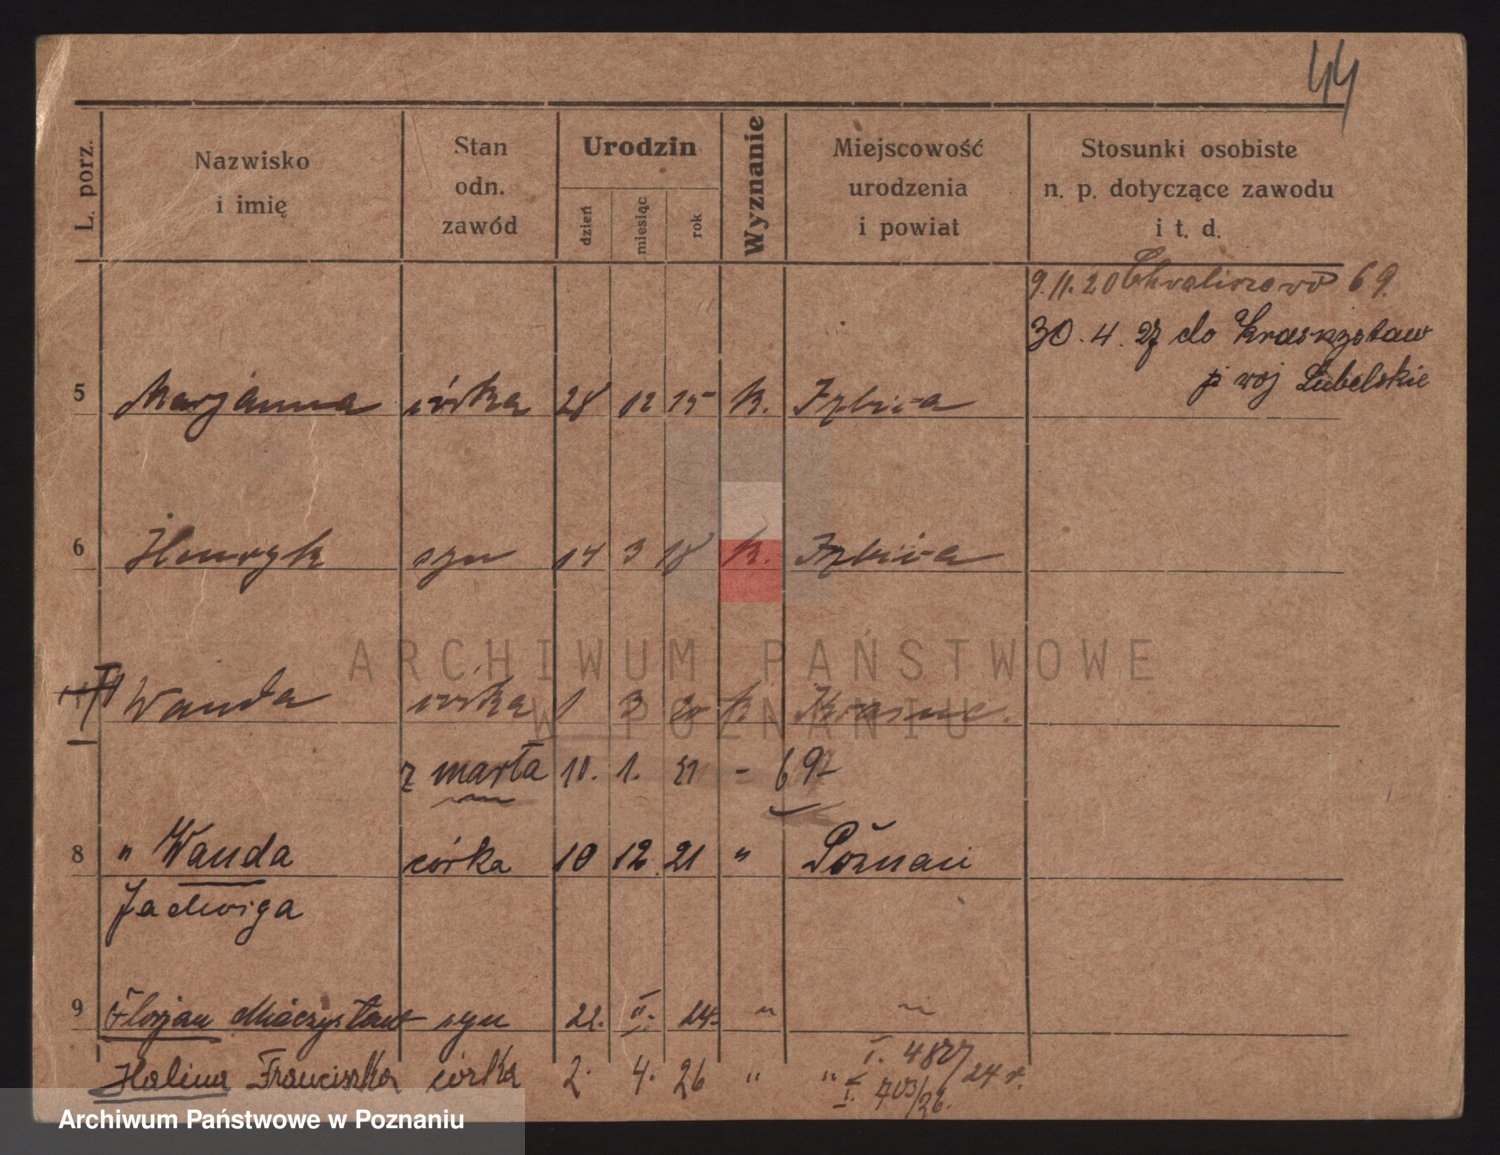 44
L. porz.
Nazwisko
i imię
Stan
odn.
zawód
Urodzin
dzień
miesiąc
rok
Wyznanie
Miejscowość
urodzenia
i powiat
Stosunki osobiste
n. p. dotyczące zawodu
i t. d.
9.11.20 69.
30.4.27 do Krasnystaw
woj Lubelskie
5 Marjanna córka 28 12 15 k. Izbica
6 Henryk syn 14 3 18 k. Izbica
Wanda córka 1 3 20 k
zmarła 10. 1. 21 - 69
8 " Wanda córka 10 12 21 " Poznań
Jadwiga
9 Florjan Mieczysław syn 22. II. 24. " "
Halina Franciszka córka 2. 4. 26 " "
I. 4827/24 r.
I. 703/26.
ARCHIWUM PAŃSTWOWE
W POZNANIU
Archiwum Państwowe w Poznaniu